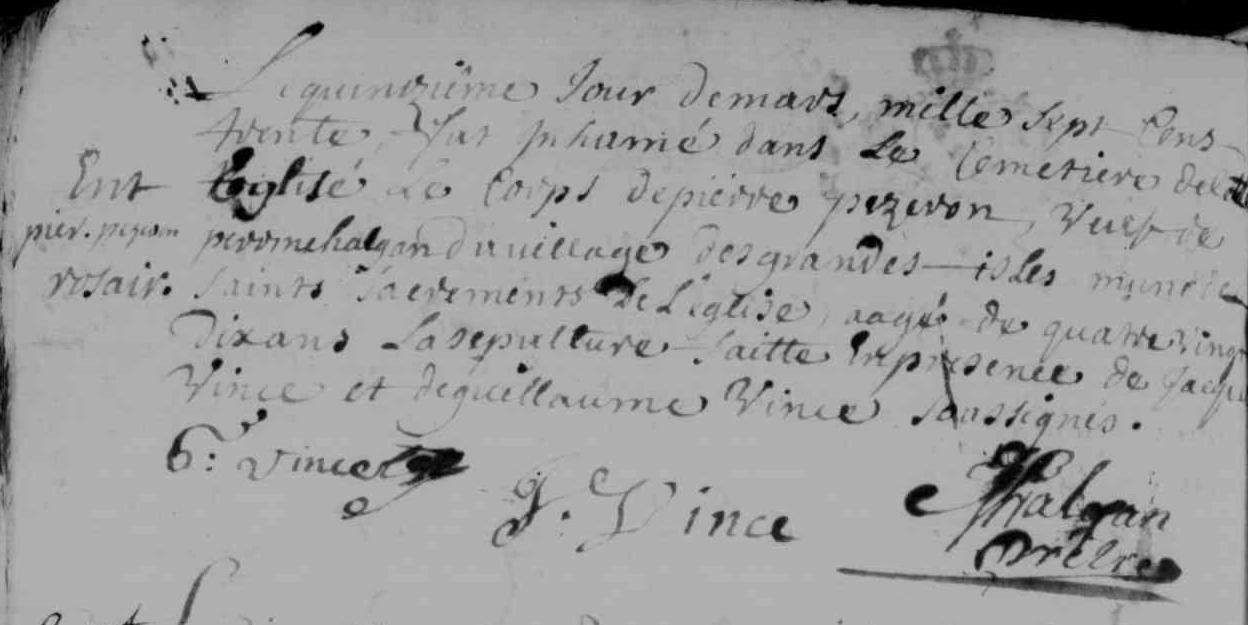 Le quinzième Jour de mars, mille sept Cens
trente, Fut Inhumé dans Le Cemetiere de
Ent
Leglise Le Corps de pierre pezeron, Veuf de
pier. pezeron
perrine halgan du village des grandes isles munie
rosair.
saints sacrements De L'eglise, aagé de quatre vingt
Dix ans La sepulture faitte En presence de Jacque
Vince et de guillaume Vince soussignés.
G: Vince
J. Vince
Halgan
Prêtre